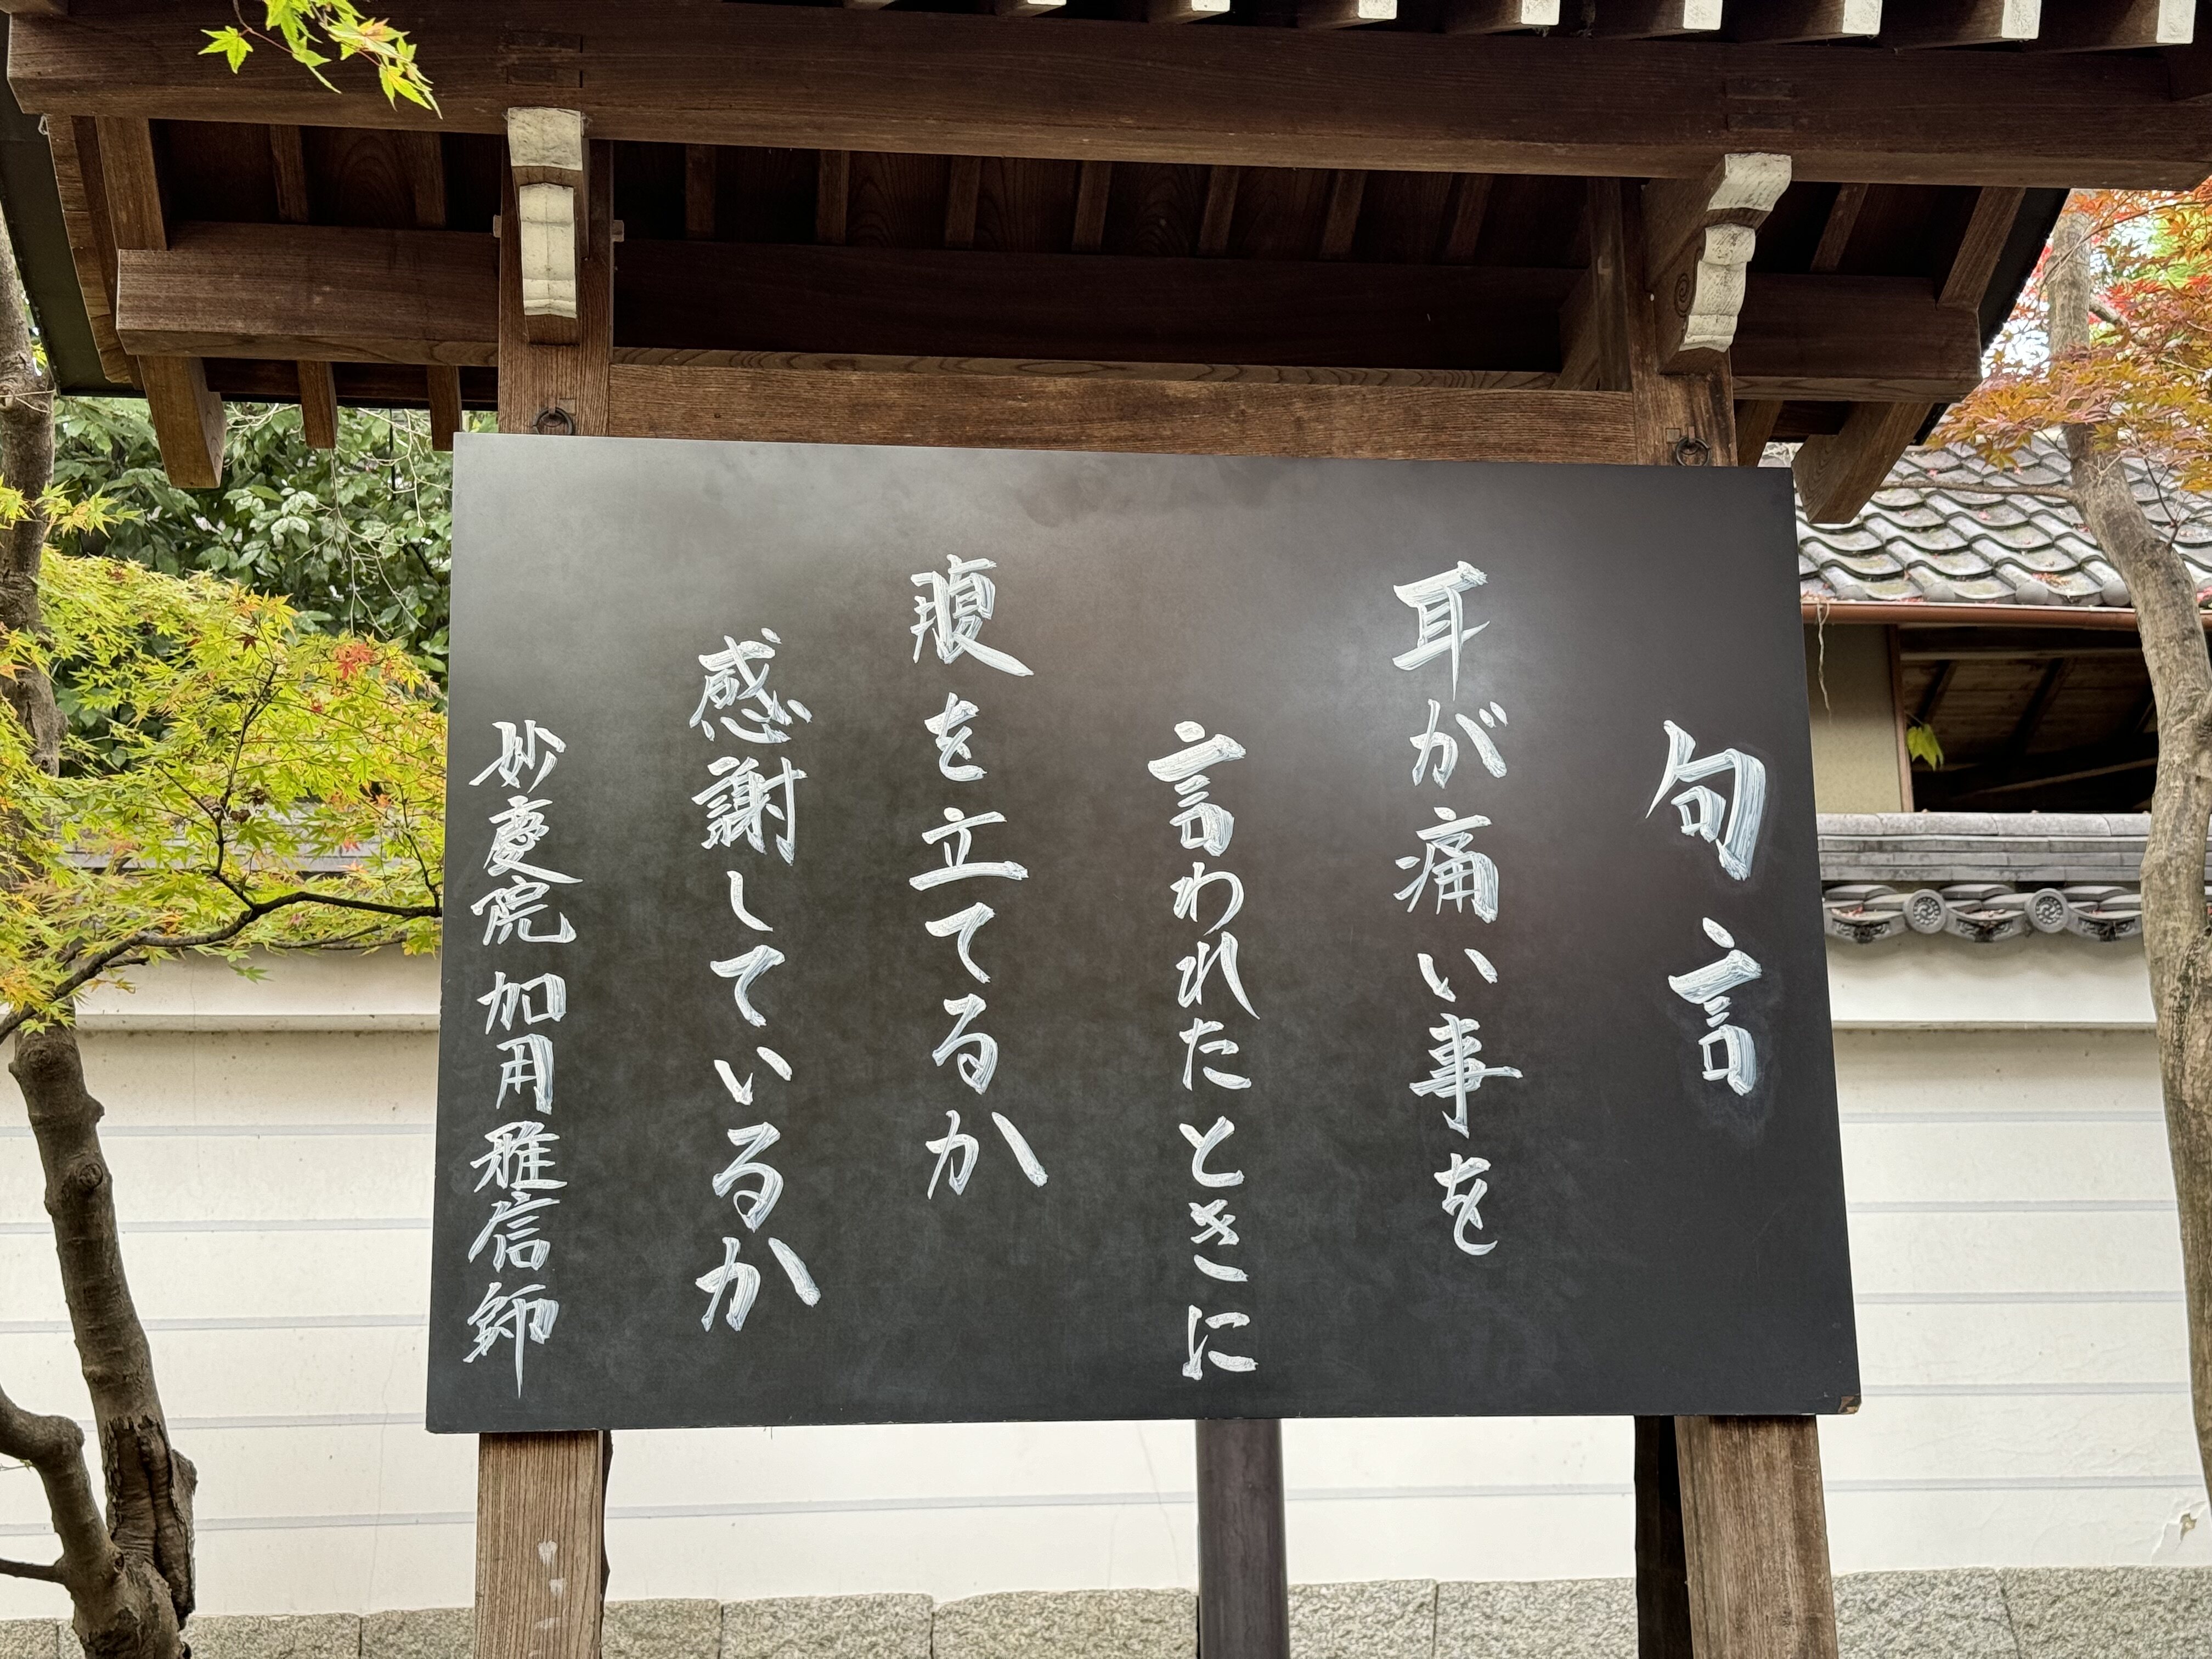 句言
耳が痛い事を
言われたときに
腹を立てるか
感謝しているか
妙慶院 加用雅信師